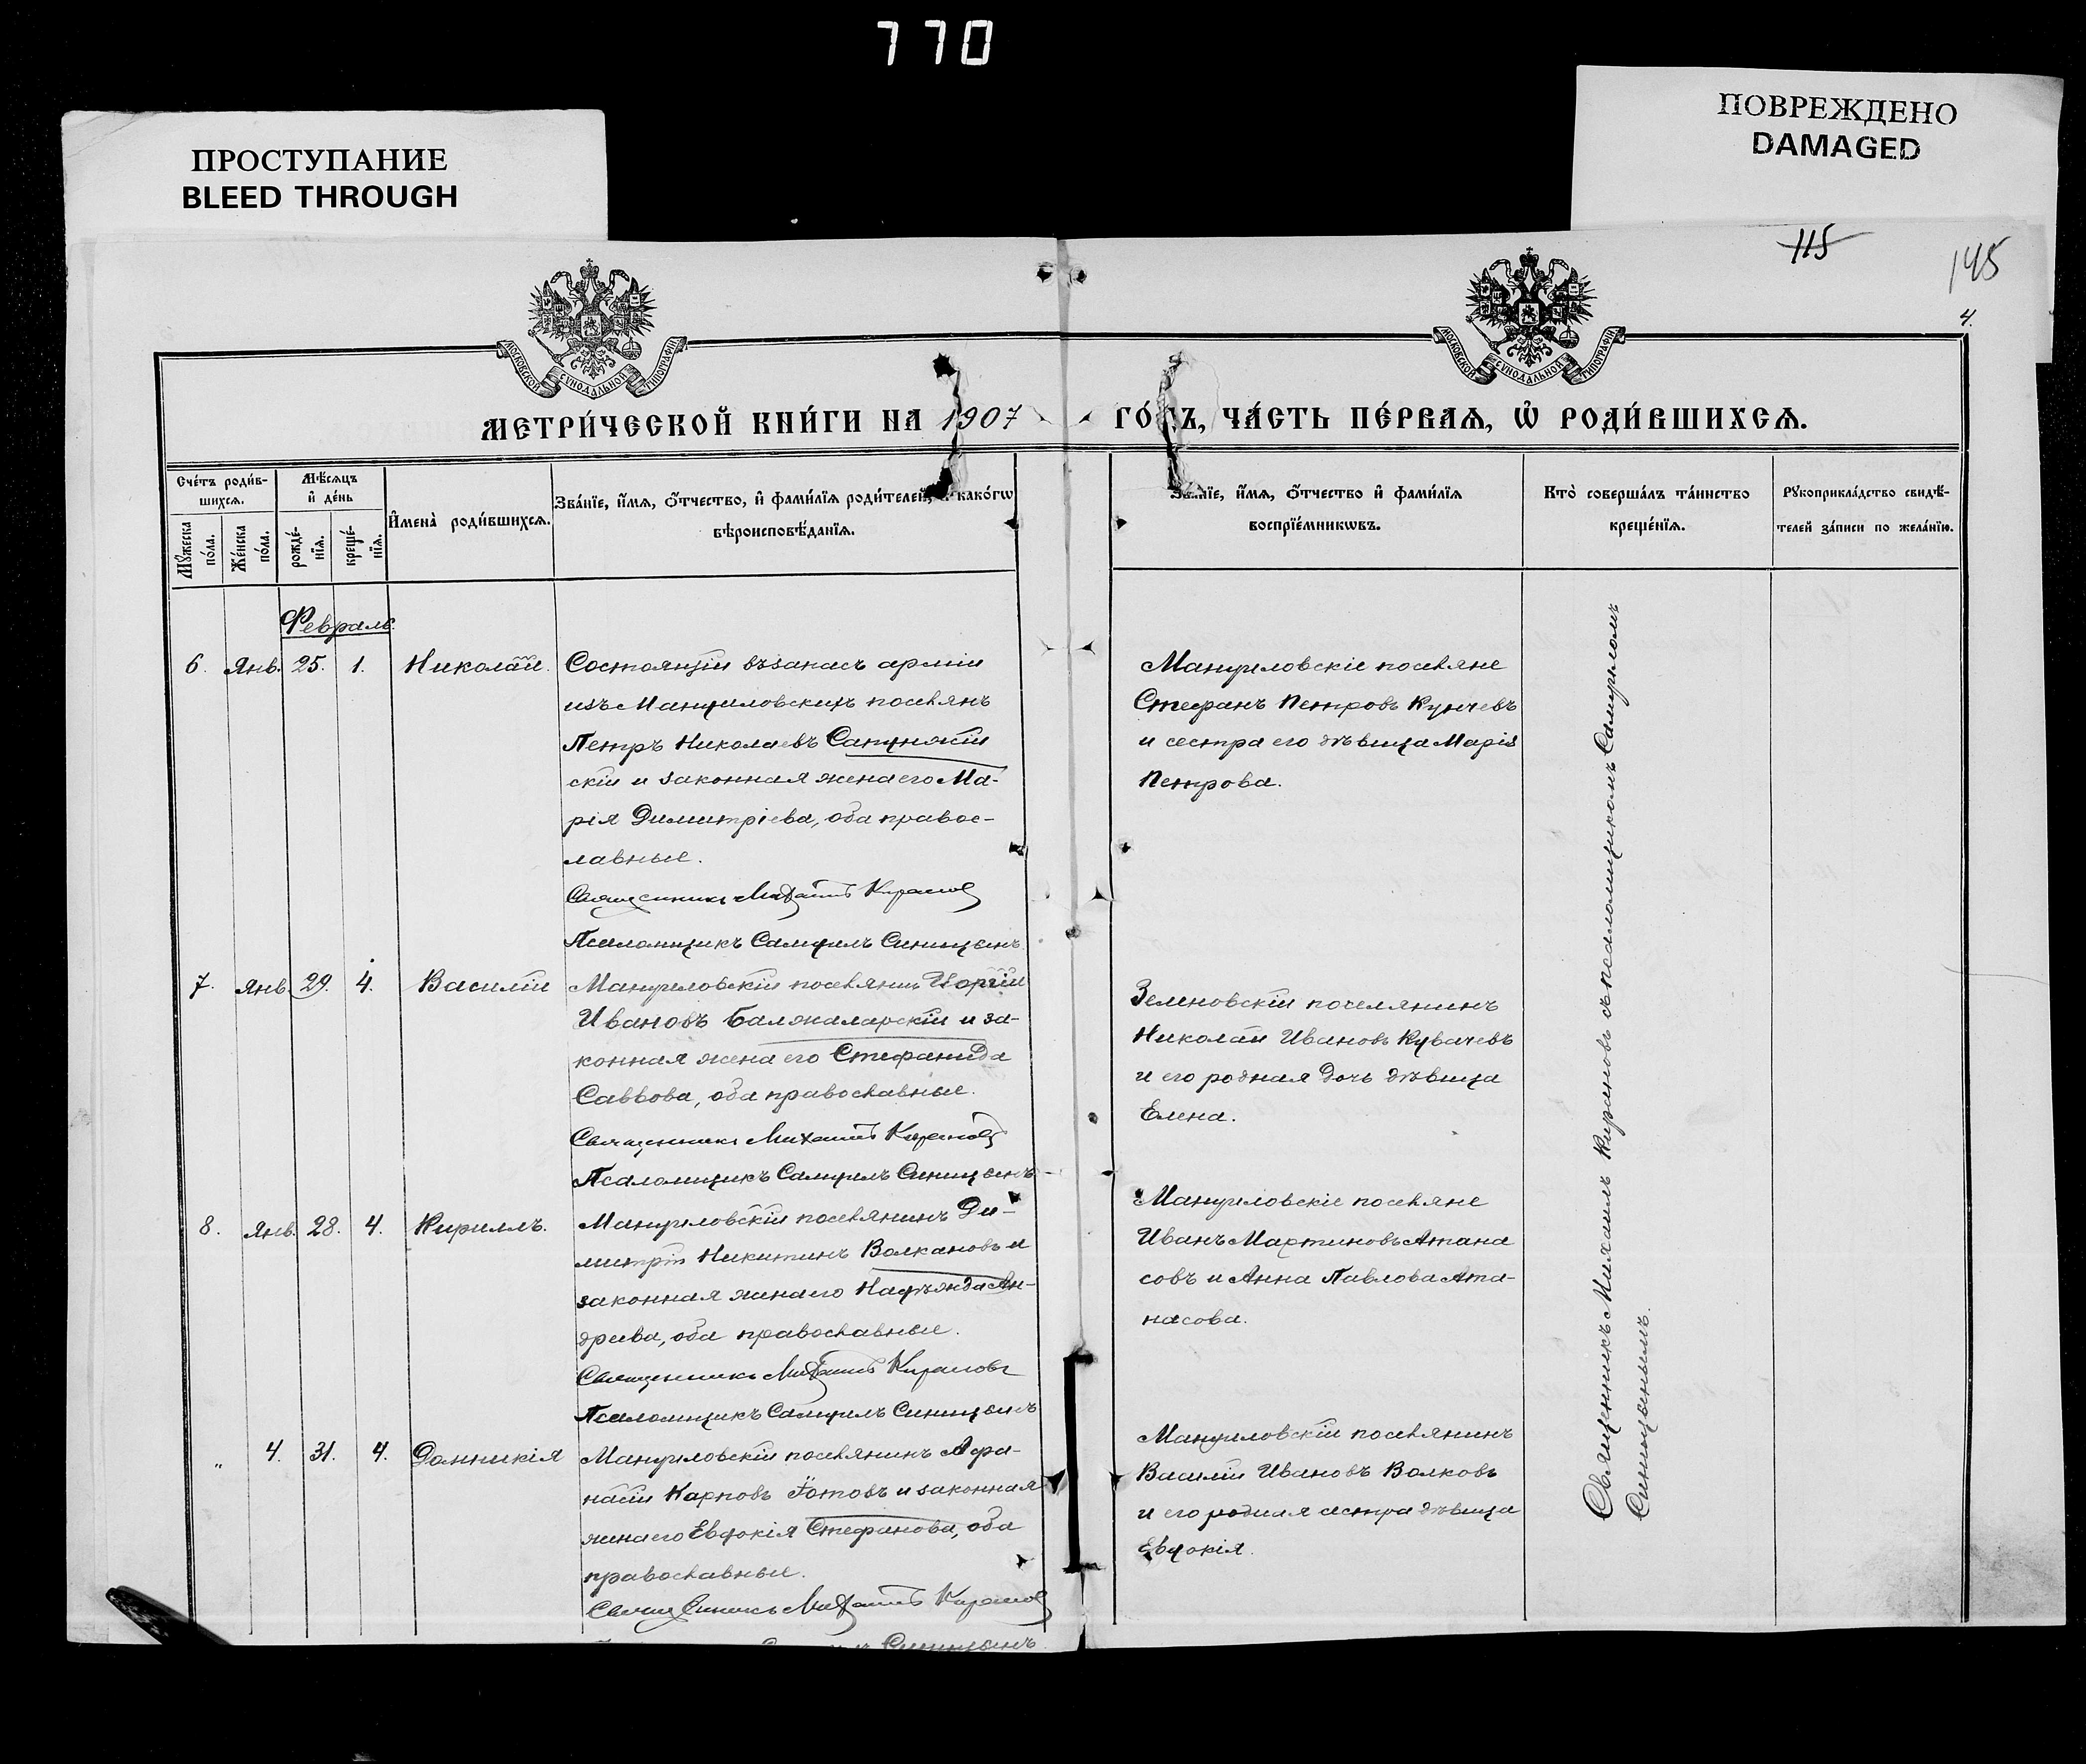 770
ПРОСТУПАНИЕ
BLEED THROUGH
ПОВРЕЖДЕНО
DAMAGED
115
145
4.
МОСКОВСКОЙ СѴНОДАЛЬНОЙ ТИПОГРАФІИ
МОСКОВСКОЙ СѴНОДАЛЬНОЙ ТИПОГРАФІИ
МЕТРИ́ЧЕСКОЙ КНИ́ГИ НА 1907 ГО́ДЪ, ЧА́СТЬ ПЕ́РВАѦ, Ѡ҆ РОДИ́ВШИХСѦ.
Сче́тъ роди́в-
шихсѧ.
Мꙋ́жеска по́ла.
Же́нска по́ла.
Мѣ́сѧцъ и҆ де́нь
рожде́-
нїѧ.
креще́-
нїѧ.
И҆мена̀ роди́вшихсѧ.
Зва́нїе, и҆́мѧ, ѻ҆́тчество, и҆ фами́лїѧ роди́телей, и҆ како́гѡ
вѣроисповѣ́данїѧ.
Зва́нїе, и҆́мѧ, ѻ҆́тчество и҆ фами́лїѧ
воспрїе́мникѡвъ.
Кто̀ соверша́лъ та́инство
креще́нїѧ.
Рꙋкоприкла́дство свидѣ́-
телей за́писи по жела́нїю.
Февраль.
6. Янв. 25. 1. Николай.
Состоящій въ запасѣ арміи
изъ Мануиловскихъ поселянъ
Петръ Николаевъ
скій и законная жена его Ма-
рія Димитріева, оба правос-
лавные.
Священникъ Михаилъ Кирановъ
Псаломщикъ Самуилъ Синицынъ
Мануиловскіе поселяне
Стефанъ Петровъ Кунчевъ
и сестра его дѣвица Марія
Петрова.
7. Янв. 29. 4. Василій
Мануиловскій поселянинъ Георгій
Ивановъ Балжаларскій и за-
конная жена его Стефанида
Саввова, оба православные.
Священникъ Михаилъ Кирановъ
Псаломщикъ Самуилъ Синицынъ
Зеленовскій поселянинъ
Николай Ивановъ Кувачевъ
и его родная дочь дѣвица
Елена.
8. Янв. 28. 4. Кириллъ.
Мануиловскій поселянинъ Ди-
митрій Никитинъ Волкановъ и
законная жена его Надѣжда Ан-
дреева, оба православные.
Священникъ Михаилъ Кирановъ
Псаломщикъ Самуилъ Синицынъ
Мануиловскіе поселяне
Иванъ Мартиновъ Атана
совъ и Анна Павлова Ата-
насова.
" 4. 31. 4. Домникія
Мануиловскій поселянинъ Афа-
насій Карповъ Готовъ и законная
жена его Евдокія Стефанова, оба
православные.
Священникъ Михаилъ Кирановъ
Синицынъ
Мануиловскій поселянинъ
Василій Ивановъ Волковъ
и его родная сестра дѣвица
Евдокія.
Священникъ Михаилъ Кирановъ съ псаломщикомъ Самуиломъ
Синицынымъ.